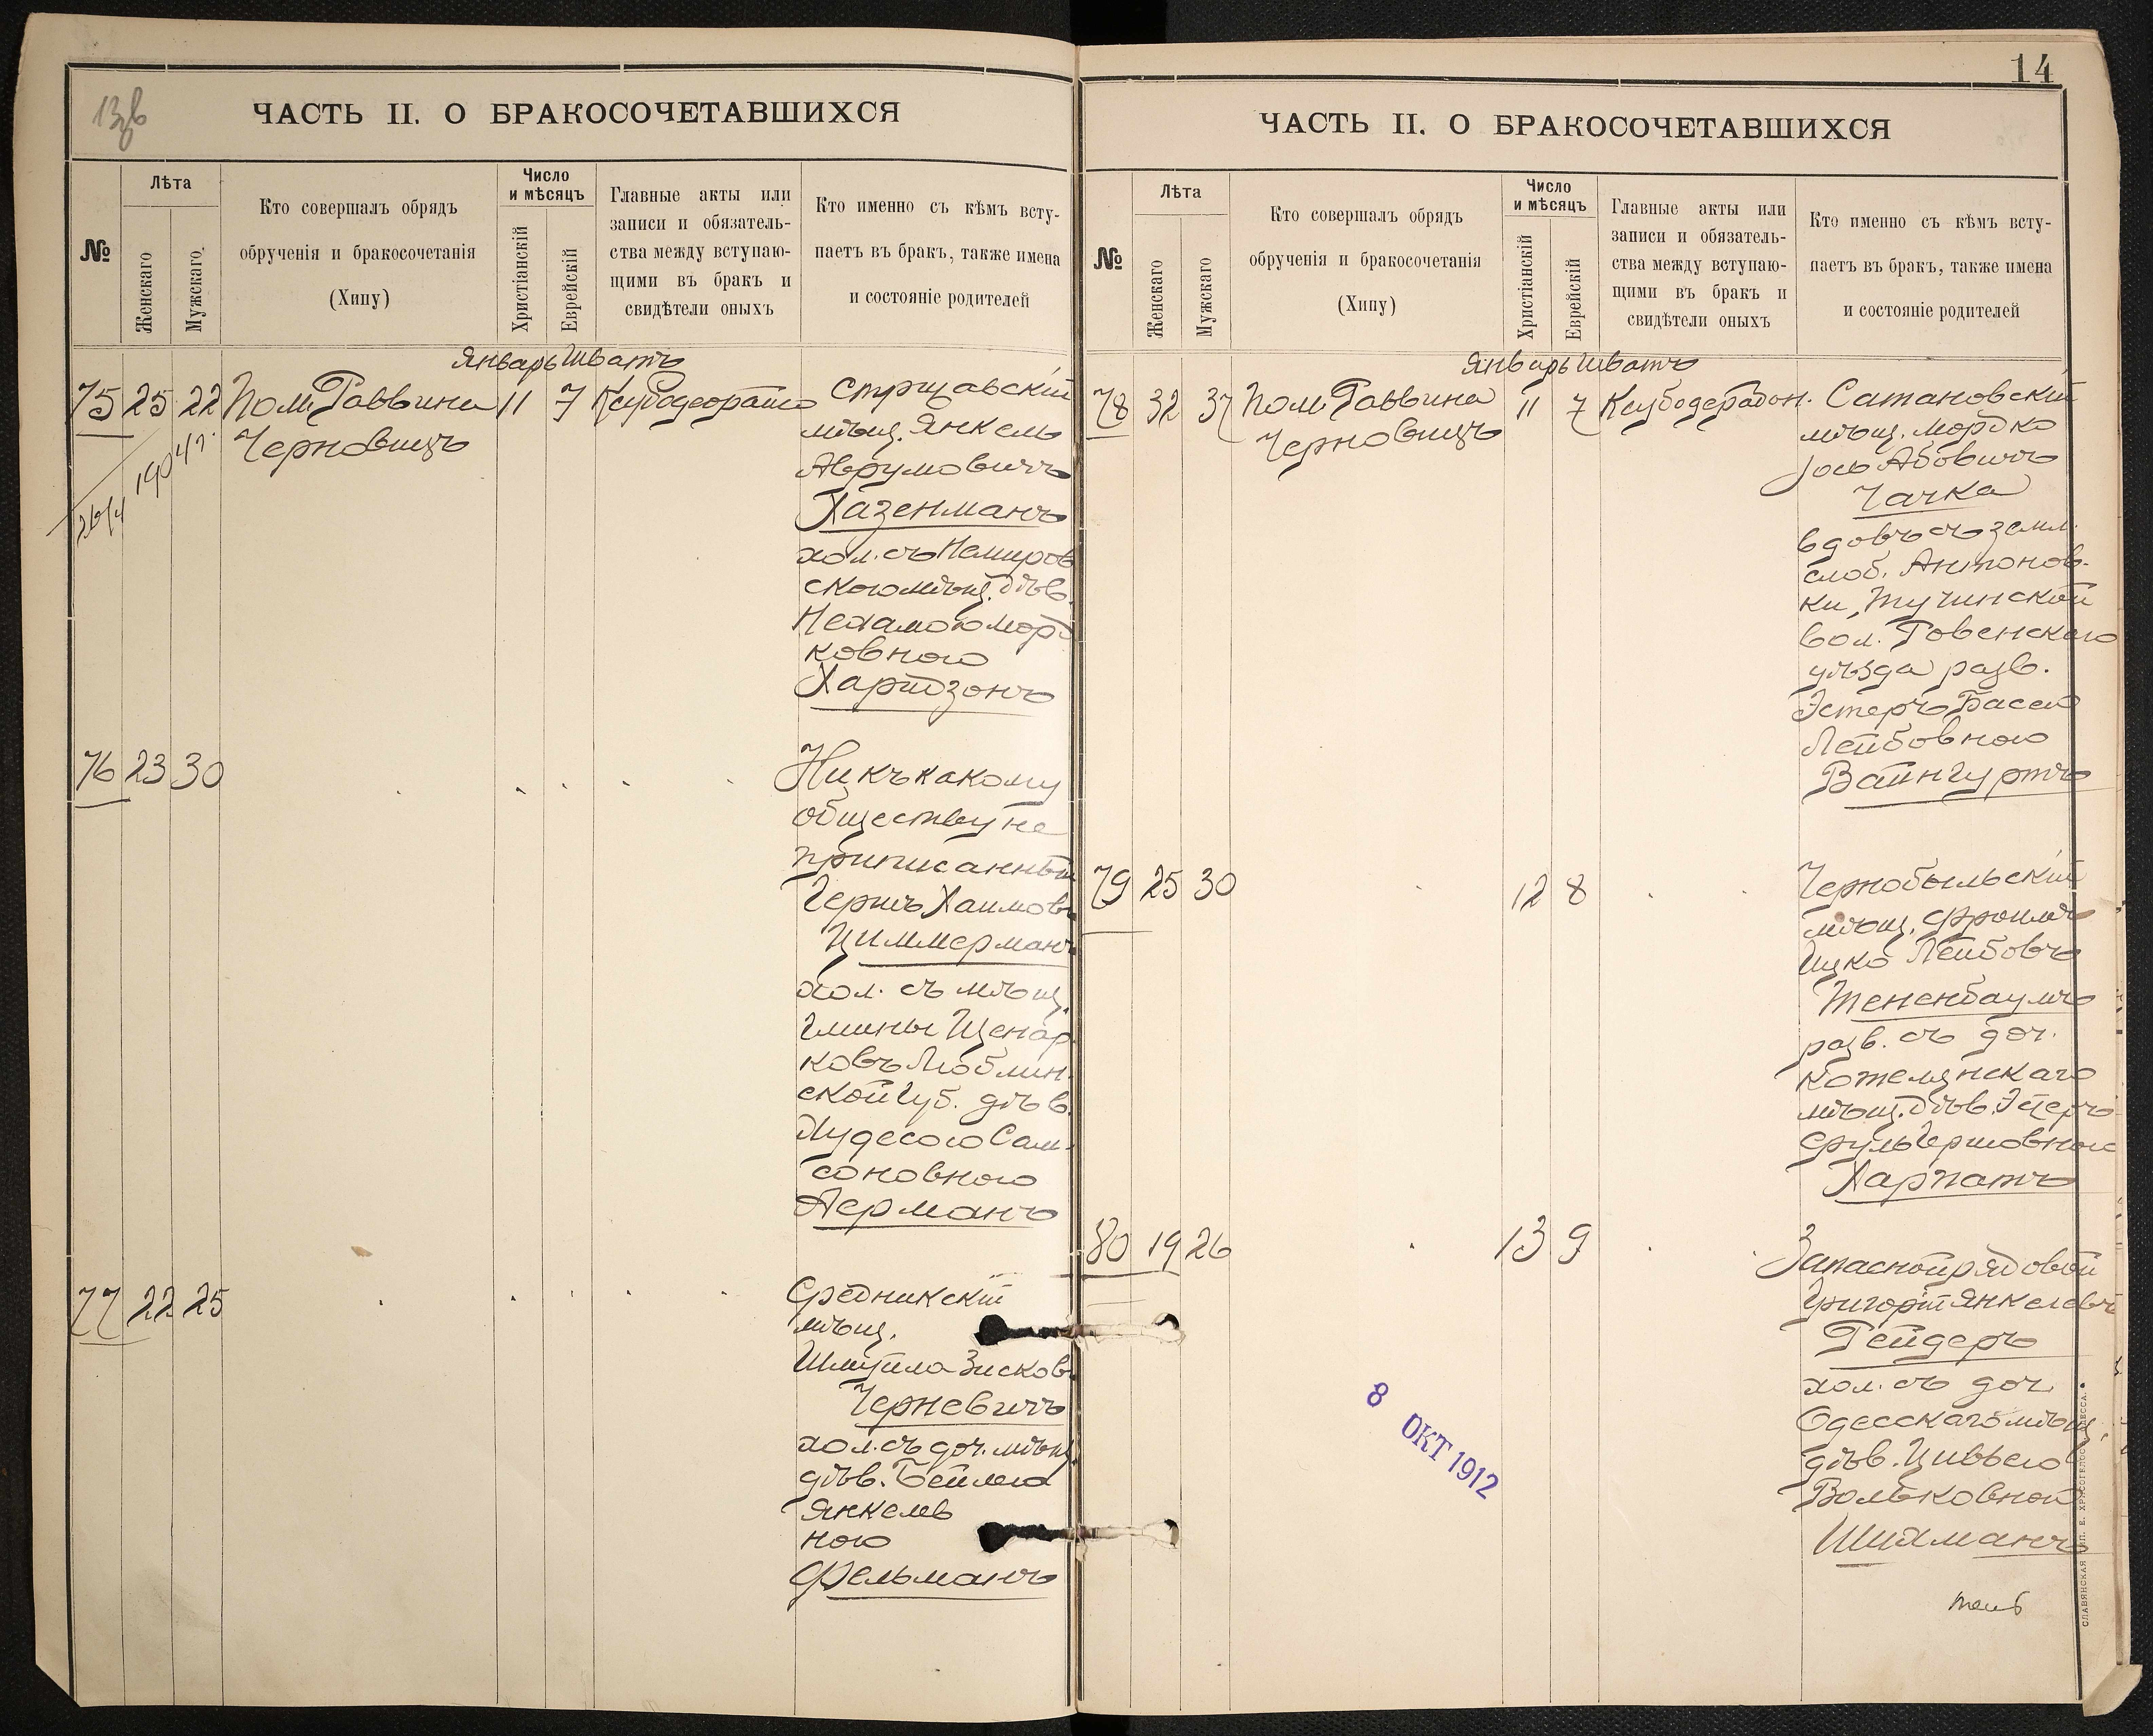 13 зв
ЧАСТЬ II. О БРАКОСОЧЕТАВШИХСЯ
№
Лѣта
Женскаго
Мужскаго
Кто совершалъ обрядъ
обрученія и бракосочетанія
(Хипу)
Число
и мѣсяцъ
Христіанскій
Еврейскій
Главные акты или
записи и обязатель-
ства между вступаю-
щими въ бракъ и
свидѣтели оныхъ
Кто именно съ кѣмъ всту-
паетъ въ бракъ, также имена
и состояніе родителей
Январь Шватъ
75 25 22 Пом. Раввина 11 7
Черновицъ
мѣщ. Янкель
Аврумовичъ
Хазенманъ
хол. съ Немиров
скою мѣщ. дѣв.
Нехамою Морд
ковною
76 23 30
Ни къ какому
обществу не
приписанный
Гершъ Хаимов
Циммерманъ
хол. съ мѣщ.
гмины
ковъ Люблин.
ской губ. дѣв.
Сам-
соновною
77 22 25
Средникскій
мѣщ.
Шмуйла Зисков
Черневичъ
хол. съ доч. мѣщ.
дѣв. Бейлею
Янкелев
ною
Фельманъ
14
ЧАСТЬ II. О БРАКОСОЧЕТАВШИХСЯ
№
Лѣта
Женскаго
Мужскаго
Кто совершалъ обрядъ
обрученія и бракосочетанія
(Хипу)
Число
и мѣсяцъ
Христіанскій
Еврейскій
Главные акты или
записи и обязатель-
ства между вступаю-
щими въ бракъ и
свидѣтели оныхъ
Кто именно съ кѣмъ всту-
паетъ въ бракъ, также имена
и состояніе родителей
Январь Шватъ
78 32 37 Пом. Раввина 11 7 Сатановскій
Черновицъ
мѣщ. Мордко
Чачка
вдовъ съ земл.
слоб. Антонов-
ки, Тучинской
вол. Ровенскаго
уѣзда разв.
Эстеръ Басею
Лейбовною
Вайнгуртъ
79 25 30 12 8
Чернобыльскій
мѣщ. Фроимъ
Ицко Лейбовъ
Тененбаумъ
разв. съ доч.
Котелянскаго
мѣщ. дѣв.
Харпатъ
80 19 26 13 9
Запасной рядовой
Григорій Янкелевъ
Рейдеръ
хол. съ доч.
Одесскаго мѣщ.
дѣв. Цивьею
Вольковной
Шихманъ
8 ОКТ 1912